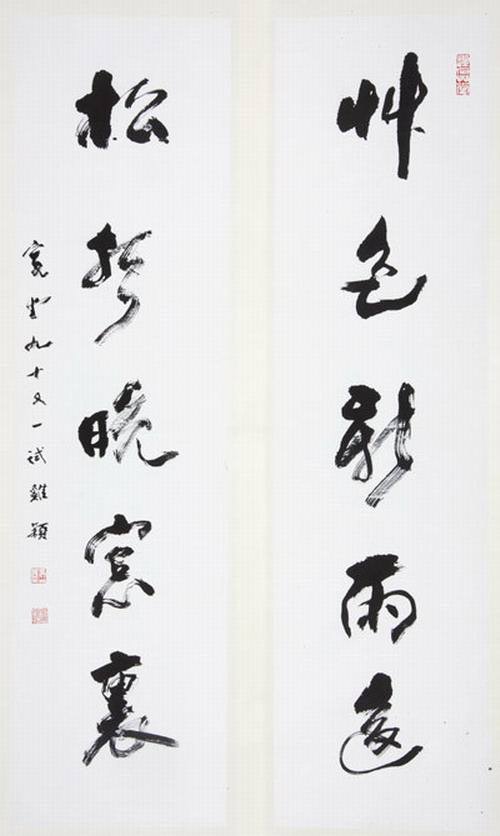 艸色新雨後
松聲晚窗裏
寬堂九十又一試雞穎